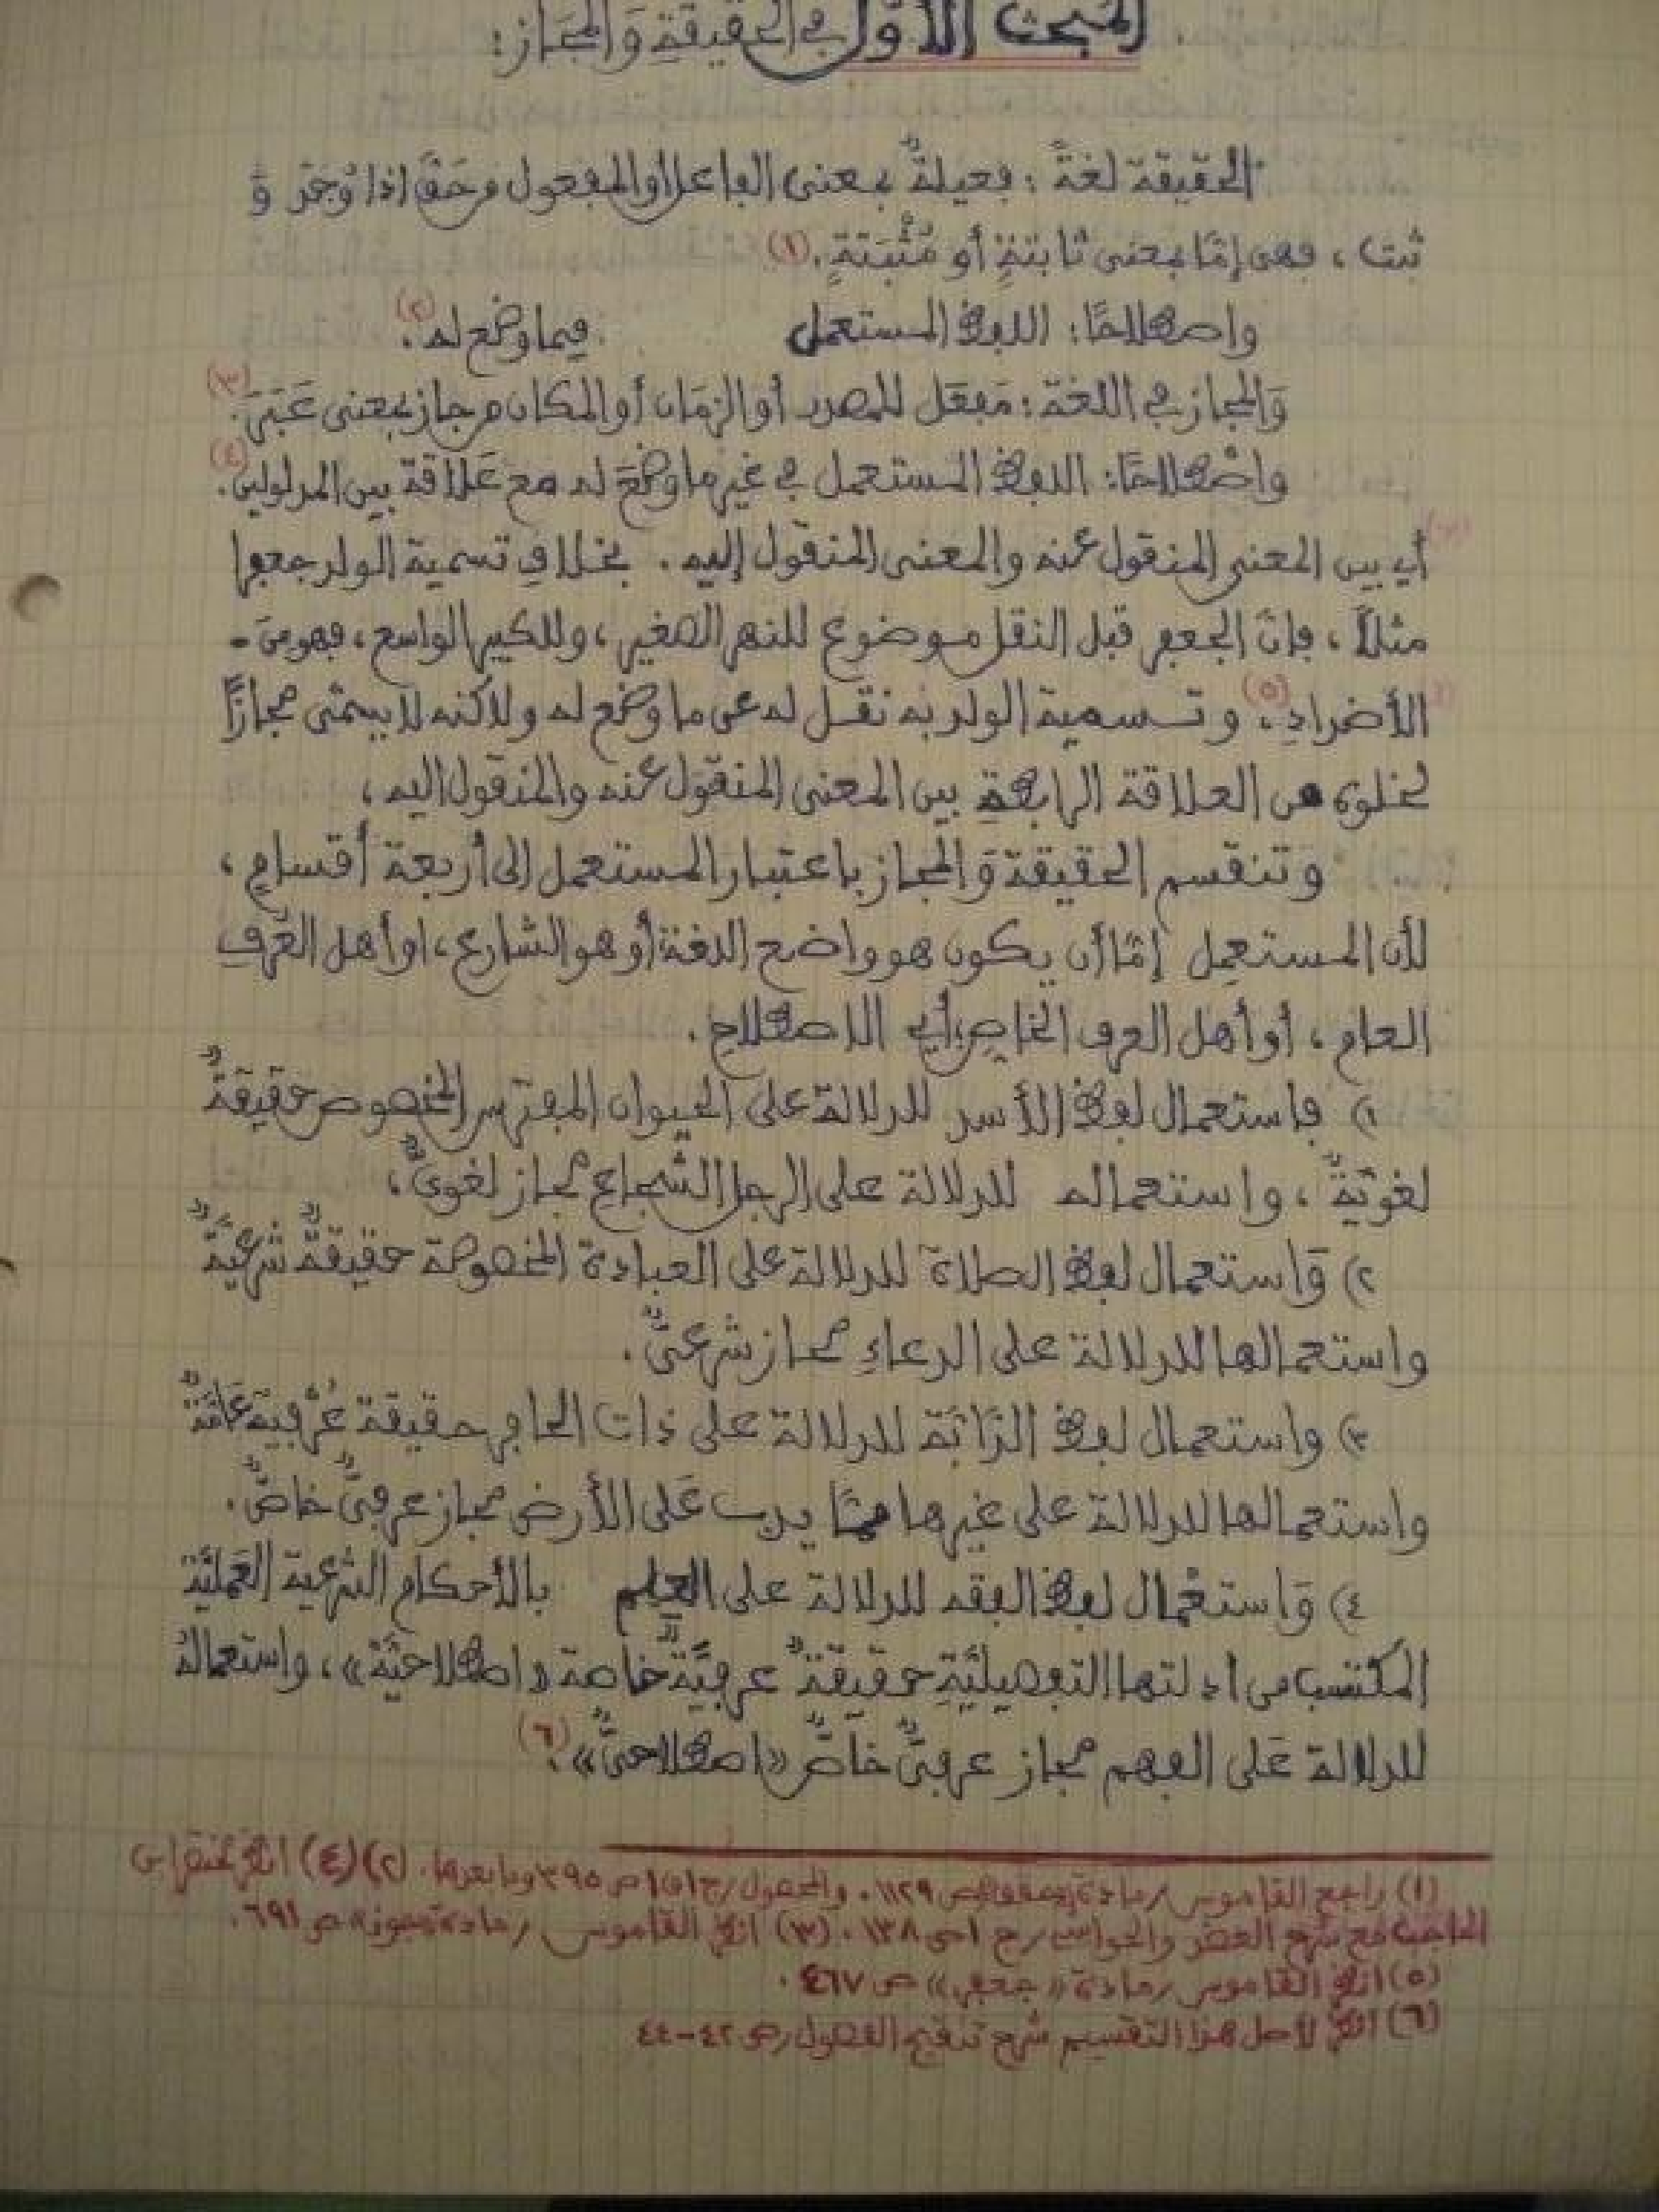 المبحث الأوّل في الحقيقةِ وَالمجَاز:
الحقيقة لغةً: فعيلةٌ بمعنى الفاعل أو المفعول من حَقَّ إذا وُجِدَ وَ
ثبت، فهي إمّا بمعنى ثابتةٍ أو مُثْبَتَةٍ.(١)
واصطلاحًا: اللفظ المستعمل فيما وضع له.(٢)
وَالمجاز في اللغة: مَفعَل للمصدر أو الزمَان أو المكان من جاز بمعنى عَبَرَ.(٣)
واصْطلاحًا: اللفظ المستعمل في غير ما وضعَ له مع عَلاقة بين المدلولين.(٤)
أي بين المعنى المنقول عنه والمعنى المنقول إليه. بخلافِ تسمية الولد جعفرا
مثلاً، فإنّ الجعفر قبل النقل موضوع للنهر الصغير، وللكبير الواسع، فهو منَ -
الأضدادِ(٥)، وتسمية الولد به نقل له عن ما وضع له ولاكنه لا يسمّى مجازًا
لخلوه من العلاقة الرابطةِ بين المعنى المنقول عنه والمنقول اليه،
وَتنقسم الحقيقة وَالمجاز باعتبار المستعمل إلى أربعة أقسامٍ،
لأن المستعمِل إمّا أن يكون هو واضع اللغة أو هو الشارع، أو أهل العُرفِ
العام، أو أهل العرف الخاصِ أي الاصطلاحِ.
١) فاستعمال لفظ الأسد للدلالة على الحيوان المفترس المخصوص حقيقةٌ
لغويّةٌ، واستعماله للدلالة على الرجل الشجاعِ مجاز لغويٌّ،
٢) وَاستعمال لفظ الصلاة للدلالة على العبادة المخصوصة حقيقةٌ شرعيّةٌ
واستعمالها للدلالة على الدعاءِ مجاز شرعيٌّ.
٣) واستعمال لفظ الدَّابَّة للدلالة على ذات الحافر حقيقة عُرْفية عَامّةٌ
واستعمالها للدلالة على غيرها ممّا يدب عَلى الأرض مجاز عرفيٌّ خاصٌّ.
٤) وَاستعْمال لفظ الفقه للدلالة على العلم بالأحكام الشرعية العَمليّة
المكتسب من ادلتها التفصيليّةِ حقيقةٌ عرفيَّةٌ خاصة «اصطلاحيَّة»، واستعماله
للدلالة عَلى الفهم مجاز عرفيٌّ خاصٌّ «اصطلاحيٌّ».(٦)
(١) راجع القاموس/مادة حقق ص ١١٢٩. والمحصول/ج١ق١ص٣٩٥ وما بعدها. (٢)(٤) انظر مختصر ابن
الحاجب مع شرح العضد والحواشي/ج ١ص ١٣٨. (٣) انظر القاموس/مادة «جوز» ص ٦٩١.
(٥) انظر القاموس/مادة «جعفر» ص ٤٦٧.
(٦) انظر لأصل هذا التقسيم شرح تنقيح الفصول/ص ٤٢-٤٤